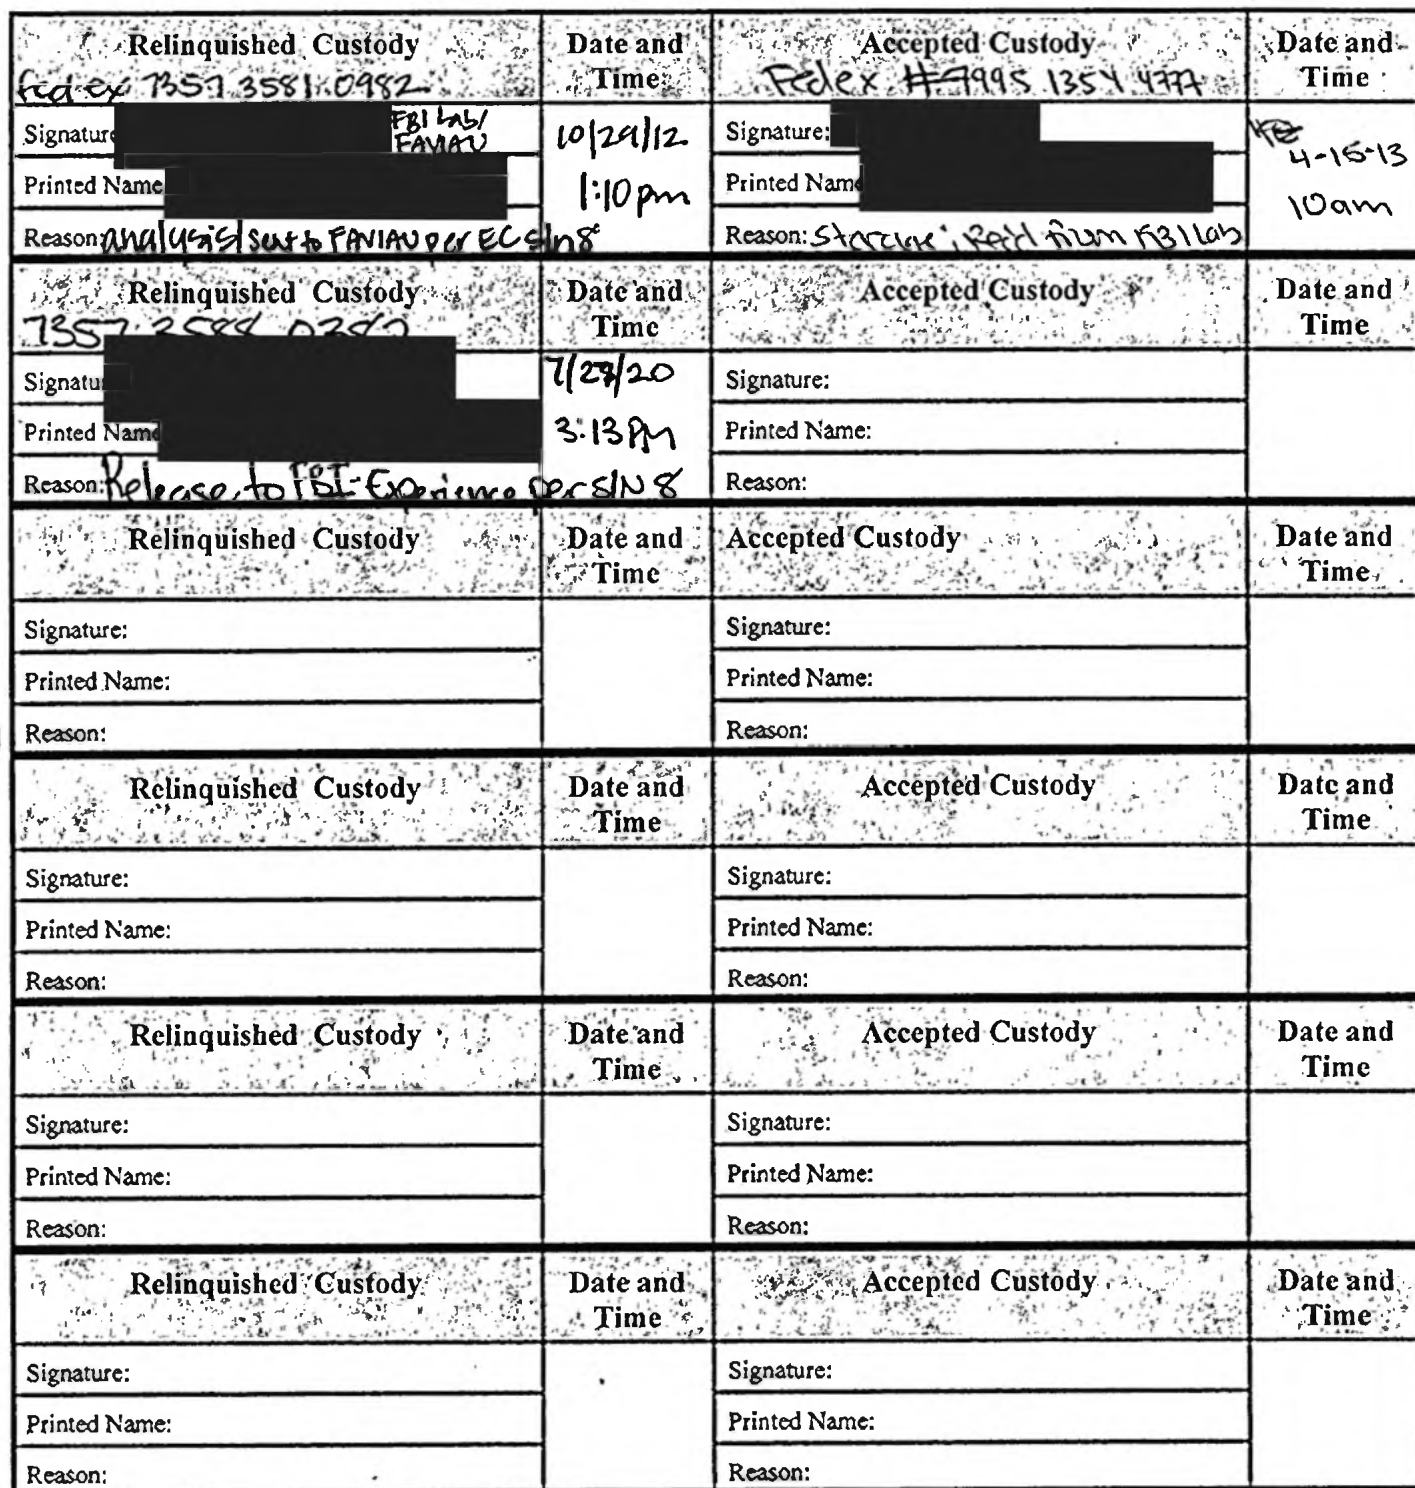 Relinquished Custody Date and Accepted Custody Date and
Fedex 7357 3581 0982 Time Fedex # 7995 1354 4777 Time
Signature FBI Lab/ 10/29/12 Signature:
FAVIAU 4-15-13
Printed Name 1:10pm Printed Name 10am
Reason: analysis/ sent to FAVIAU per EC s/n 8 Reason: Storage; Recd from FBI Lab
Relinquished Custody Date and Accepted Custody Date and
7357 3588 0382 Time Time
Signatu 7/28/20 Signature:
Printed Name 3:13 PM Printed Name:
Reason: Release to FBI Experience per S/N 8 Reason:
Relinquished Custody Date and Accepted Custody Date and
Time Time
Signature: Signature:
Printed Name: Printed Name:
Reason: Reason:
Relinquished Custody Date and Accepted Custody Date and
Time Time
Signature: Signature:
Printed Name: Printed Name:
Reason: Reason:
Relinquished Custody Date and Accepted Custody Date and
Time Time
Signature: Signature:
Printed Name: Printed Name:
Reason: Reason:
Relinquished Custody Date and Accepted Custody Date and
Time Time
Signature: Signature:
Printed Name: Printed Name:
Reason: Reason: